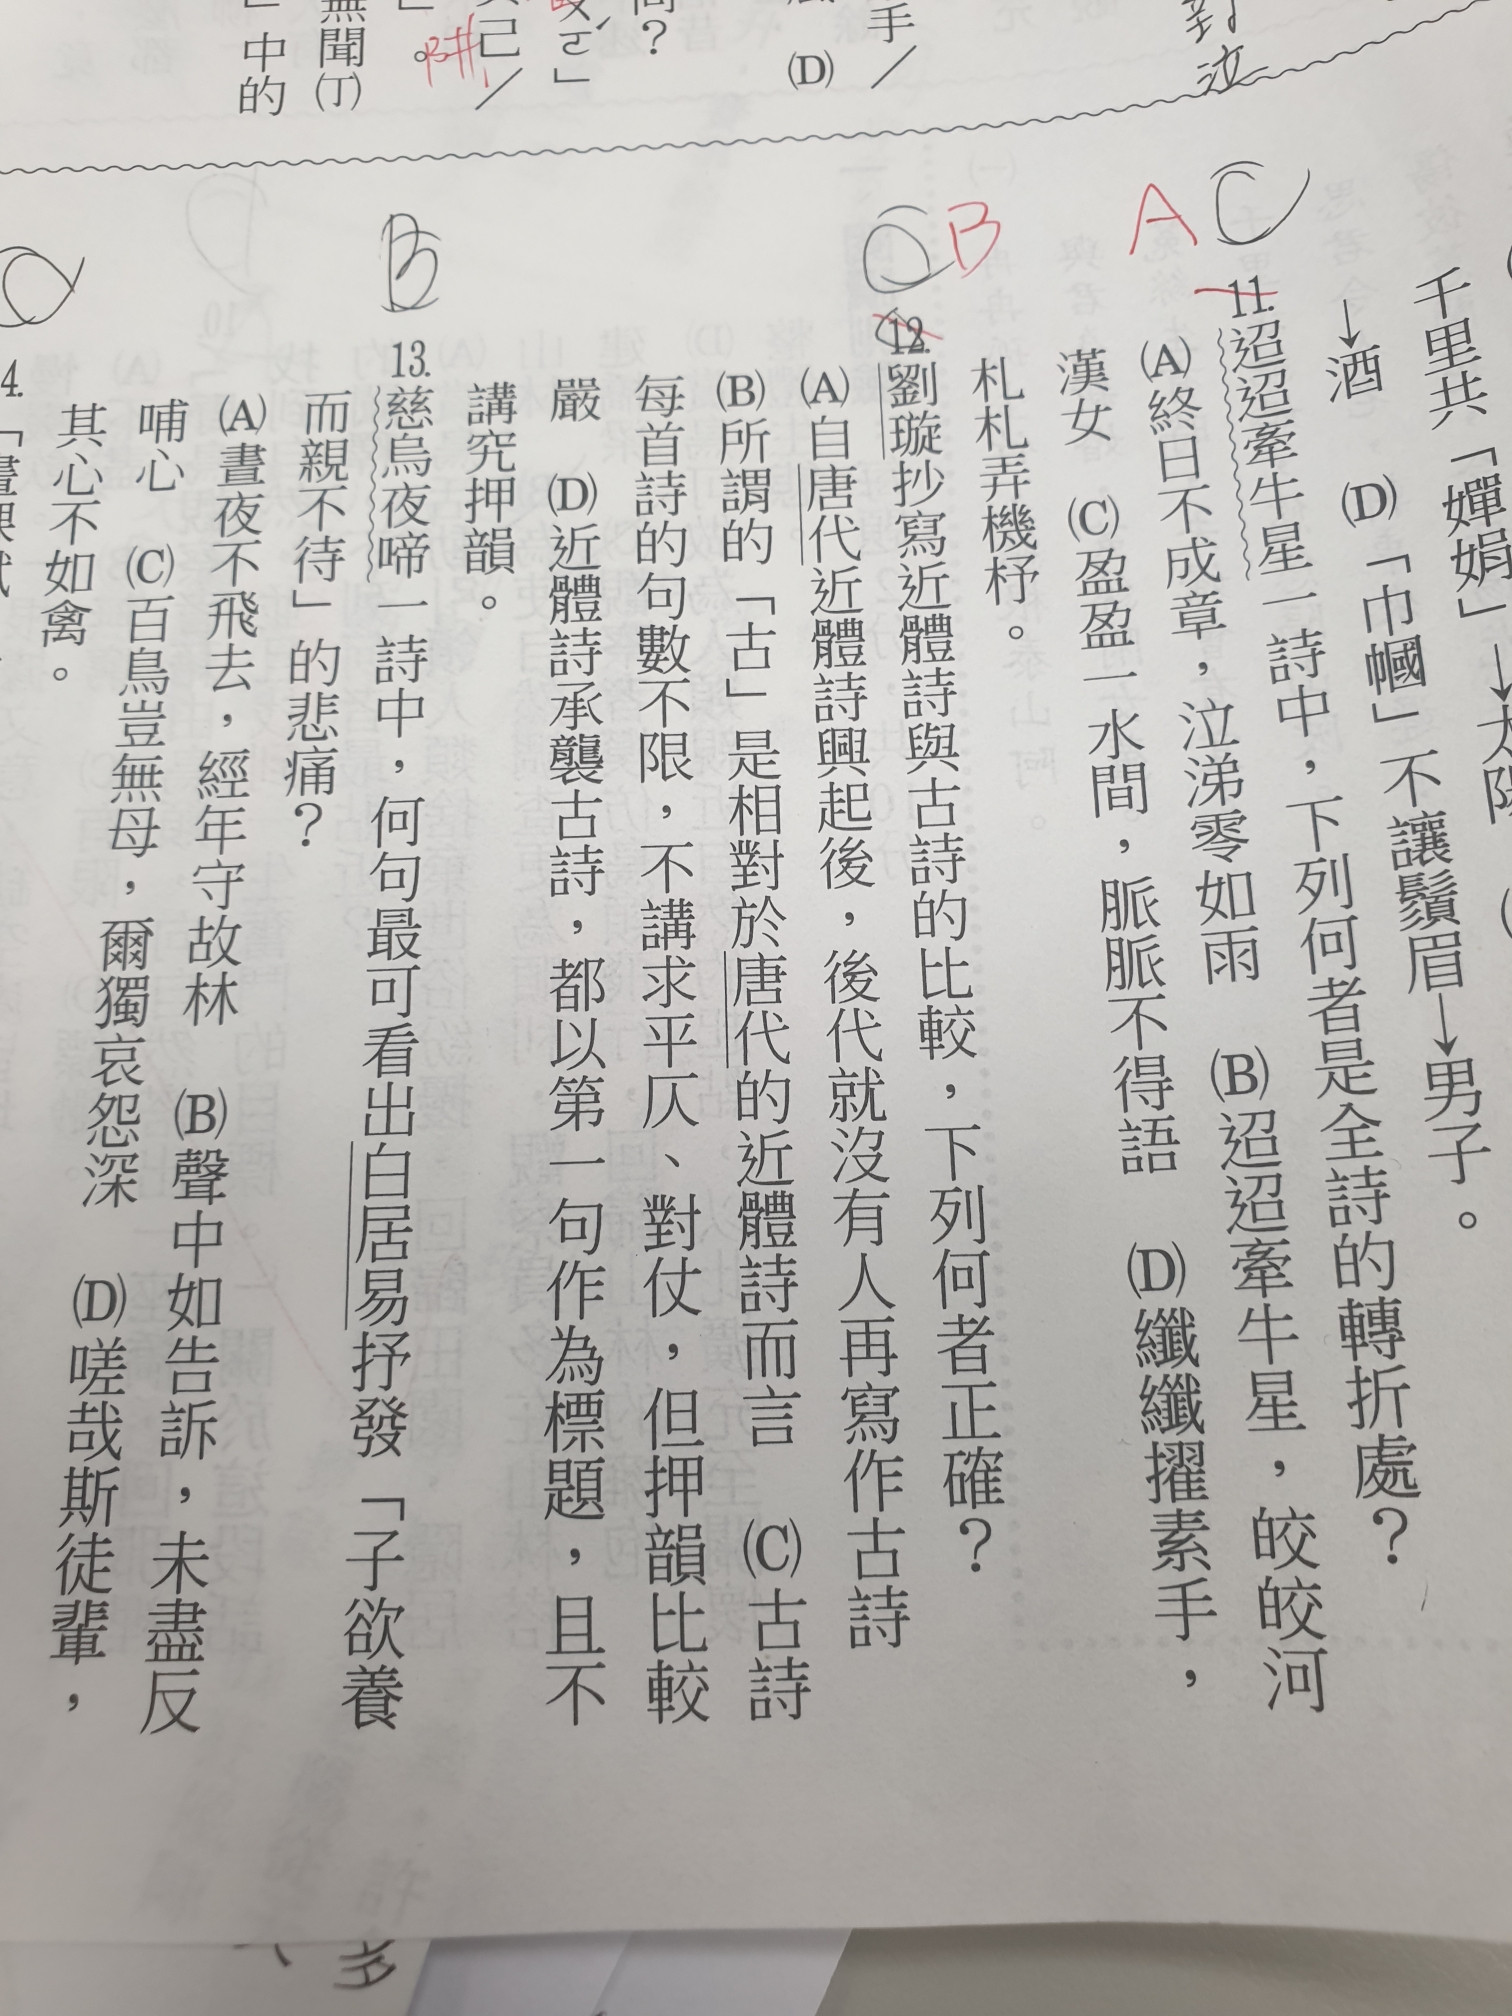 對泣
手／
(D)
問？
ㄡˊㄛ」
己／
」。
無聞(丁)
」中的
千里共「嬋娟」→太陽
→酒　(D)「巾幗」不讓鬚眉→男子。
C
A
11.迢迢牽牛星一詩中，下列何者是全詩的轉折處？
(A)終日不成章，泣涕零如雨　(B)迢迢牽牛星，皎皎河
漢女　(C)盈盈一水間，脈脈不得語　(D)纖纖擢素手，
札札弄機杼。
B
C
12.劉璇抄寫近體詩與古詩的比較，下列何者正確？
(A)自唐代近體詩興起後，後代就沒有人再寫作古詩
(B)所謂的「古」是相對於唐代的近體詩而言　(C)古詩
每首詩的句數不限，不講求平仄、對仗，但押韻比較
嚴　(D)近體詩承襲古詩，都以第一句作為標題，且不
講究押韻。
B
13.慈烏夜啼一詩中，何句最可看出白居易抒發「子欲養
而親不待」的悲痛？
(A)晝夜不飛去，經年守故林　(B)聲中如告訴，未盡反
哺心　(C)百鳥豈無母，爾獨哀怨深　(D)嗟哉斯徒輩，
其心不如禽。
4.
許多